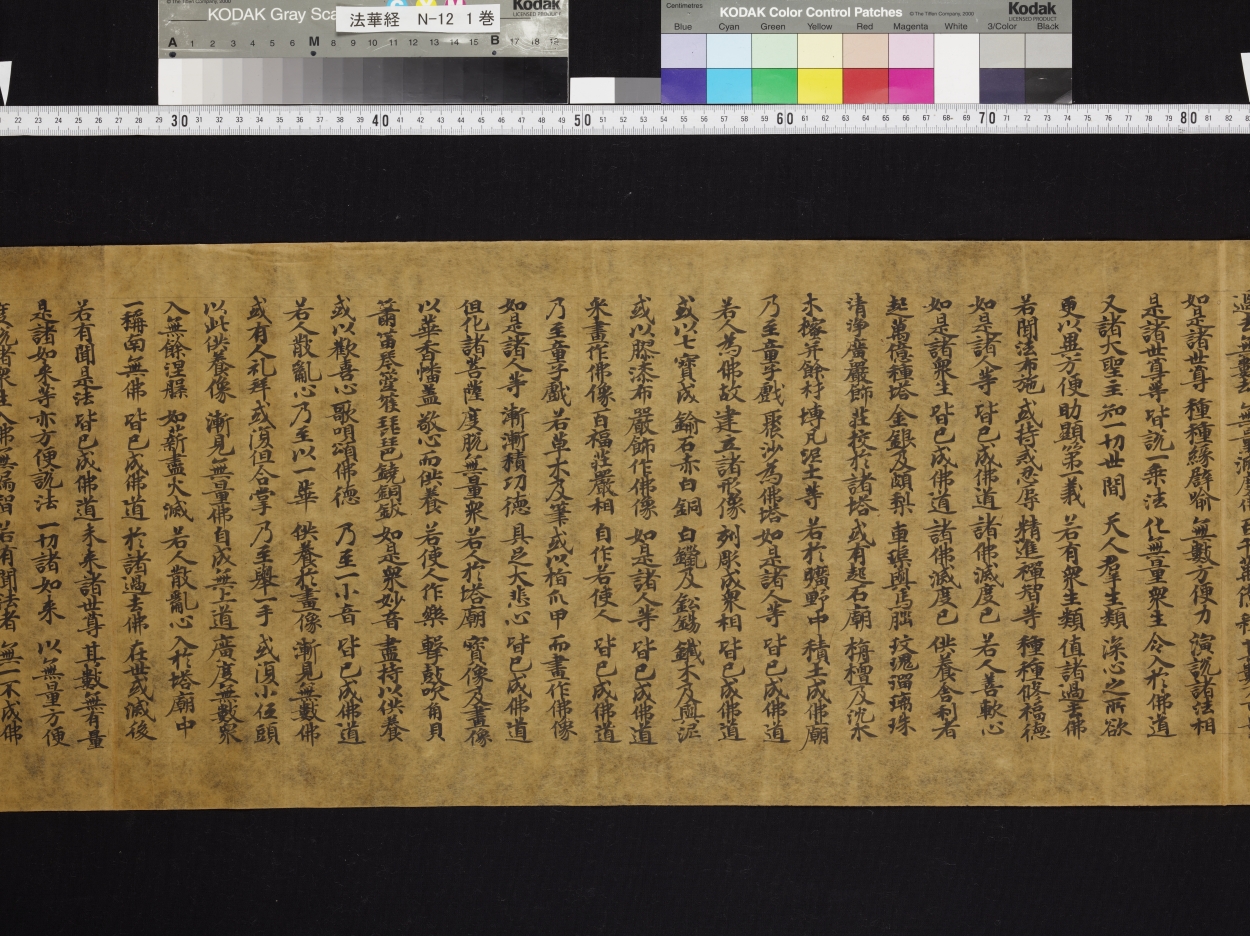 KODAK Gray Sca
© The Tiffen Company, 2000
Kodak
LICENSED PRODUCT
法華経 N-12 1巻
A 1 2 3 4 5 6 M 8 9 10 11 12 13 14 15 B 17 18 19
Centimetres
KODAK Color Control Patches
© The Tiffen Company, 2000
Kodak
LICENSED PRODUCT
Blue Cyan Green Yellow Red Magenta White 3/Color Black
22 23 24 25 26 27 28 29 30 31 32 33 34 35 36 37 38 39 40 41 42 43 44 45 46 47 48 49 50 51 52 53 54 55 56 57 58 59 60 61 62 63 64 65 66 67 68 69 70 71 72 73 74 75 76 77 78 79 80 81 82
如是諸世尊 種種緣譬喻 無數方便力 演說諸法相
是諸世尊等 皆說一乘法 化無量衆生 令入於佛道
又諸大聖主 知一切世間 天人羣生類 深心之所欲
更以異方便 助顯第一義 若有衆生類 值諸過去佛
若聞法布施 或持戒忍辱 精進禪智等 種種修福德
如是諸人等 皆已成佛道 諸佛滅度已 若人善軟心
如是諸衆生 皆已成佛道 諸佛滅度已 供養舍利者
起萬億種塔 金銀及頗梨 車璖與馬瑙 玫瑰瑠璃珠
清淨廣嚴飾 莊挍於諸塔 或有起石廟 栴檀及沈水
木櫁并餘材 塼瓦泥土等 若於曠野中 積土成佛廟
乃至童子戲 聚沙為佛塔 如是諸人等 皆已成佛道
若人為佛故 建立諸形像 刻彫成衆相 皆已成佛道
或以七寶成 鍮石赤白銅 白鑞及鉛錫 鐵木及與泥
或以膠漆布 嚴飾作佛像 如是諸人等 皆已成佛道
綵畫作佛像 百福莊嚴相 自作若使人 皆已成佛道
乃至童子戲 若草木及筆 或以指爪甲 而畫作佛像
如是諸人等 漸漸積功德 具足大悲心 皆已成佛道
但化諸菩薩 度脫無量衆 若人於塔廟 寶像及畫像
以華香幡蓋 敬心而供養 若使人作樂 擊鼓吹角貝
簫笛琴箜篌 琵琶鐃銅鈸 如是衆妙音 盡持以供養
或以歡喜心 歌唄頌佛德 乃至一小音 皆已成佛道
若人散亂心 乃至以一華 供養於畫像 漸見無數佛
或有人礼拜 或復但合掌 乃至舉一手 或復小伍頭
以此供養像 漸見無量佛 自成無上道 廣度無數衆
入無餘涅槃 如薪盡火滅 若人散亂心 入於塔廟中
一稱南無佛 皆已成佛道 於諸過去佛 在世或滅後
若有聞是法 皆已成佛道 未來諸世尊 其數無有量
是諸如來等 亦方便說法 一切諸如來 以無量方便
若有聞法者 無一不成佛